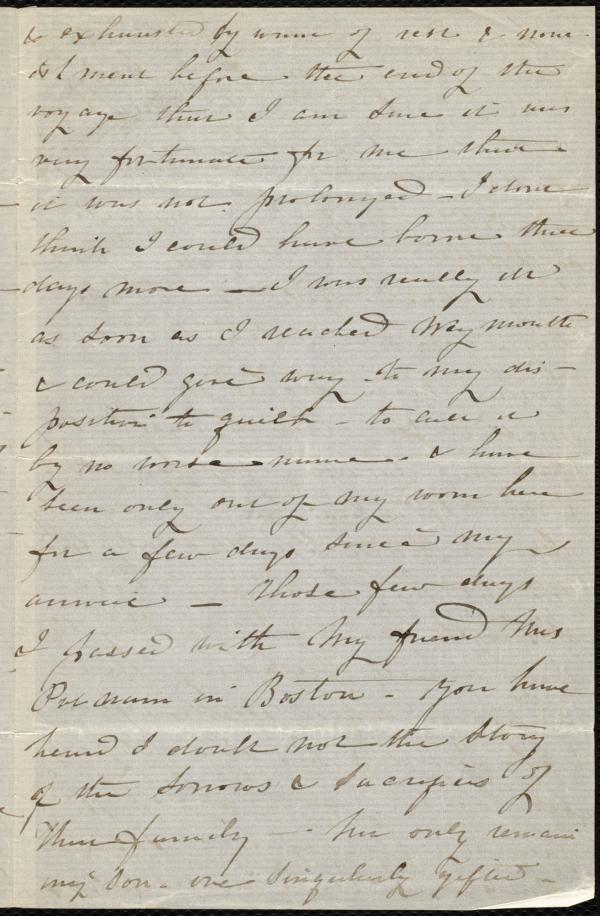 & exhausted by want of rest & nourishment before the end of the
voyage that I am sure it was
very fortunate for me that
it was not prolonged – I don't
think I could have borne three
days more – I was really ill
as soon as I reached Weymouth
& could give way to my dis-
position to quiet – to call it
by no worse name – & have
been only out of my room here
for a few days since my
arrival – Those few days
I passed with my friend Mrs
Putnam in Boston – You have
heard I doubt not the story
of the sorrows & sacrifices of
that family – her only remain
ing son – one singularly gifted –